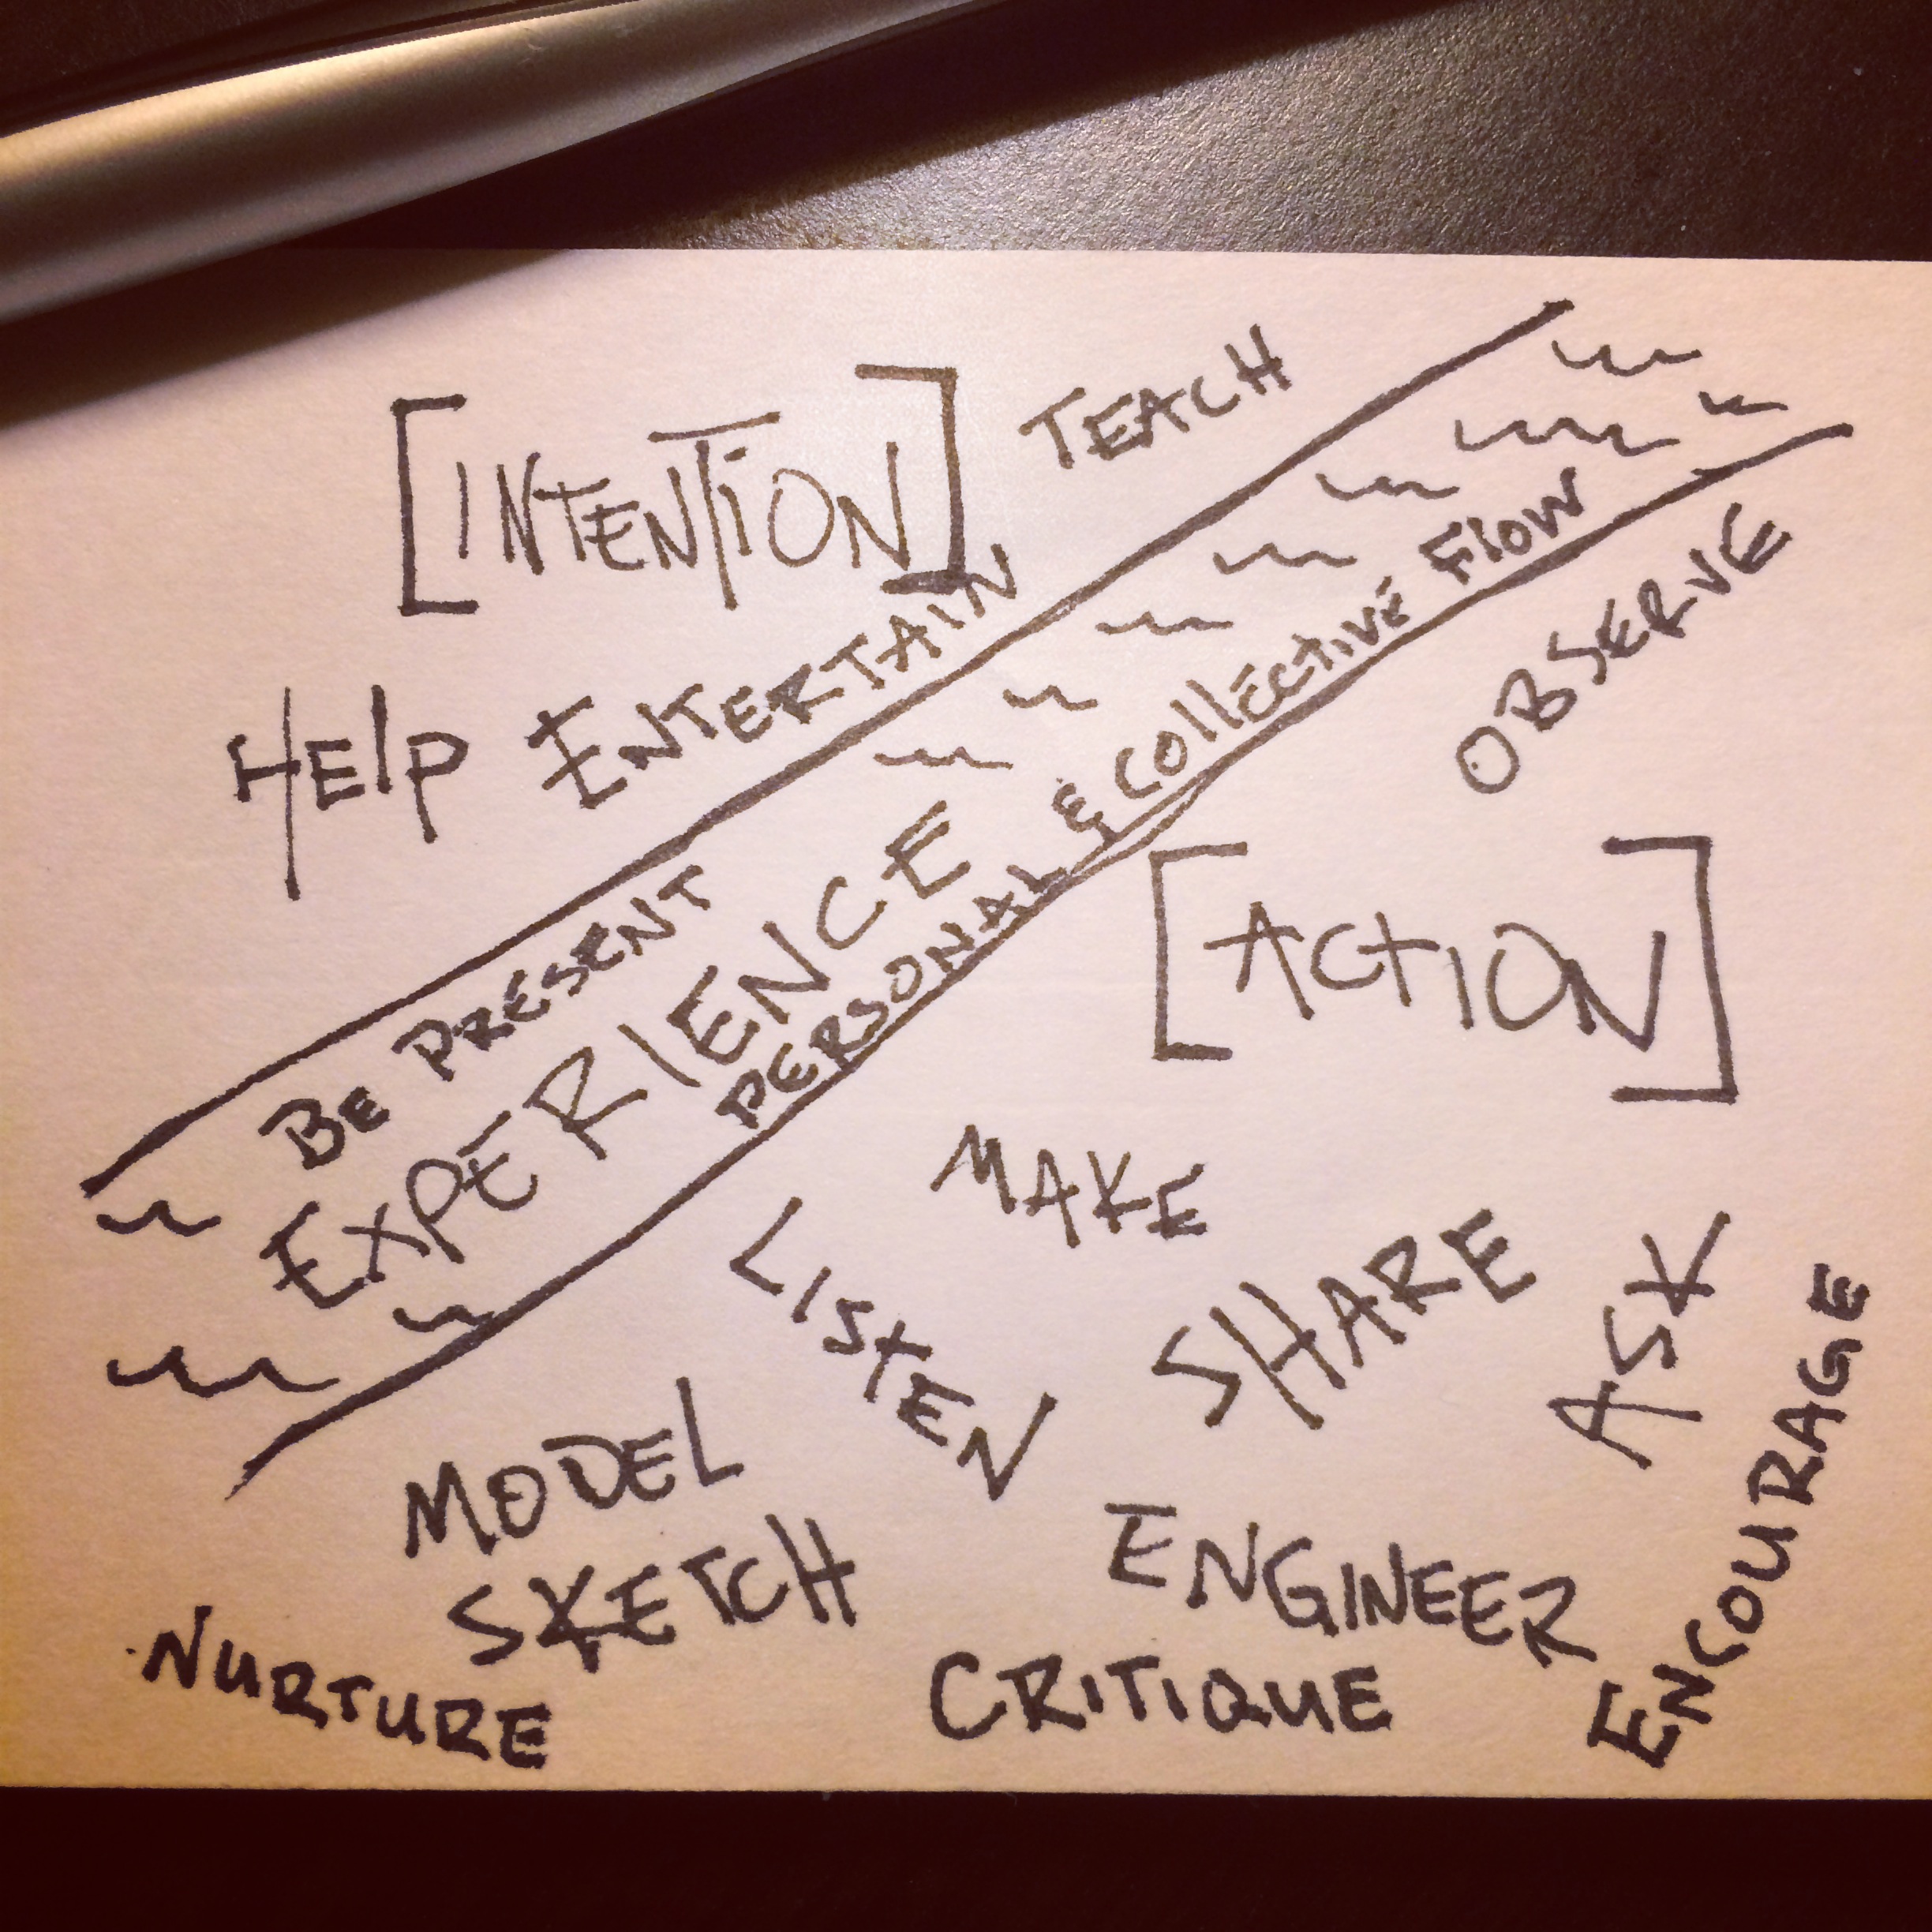 [INTENTION]
TEACH
HELP
ENTERTAIN
BE PRESENT
EXPERIENCE
PERSONAL & COLLECTIVE FLOW
OBSERVE
[ACTION]
MAKE
LISTEN
SHARE
ASK
MODEL
SKETCH
ENGINEER
ENCOURAGE
NURTURE
CRITIQUE